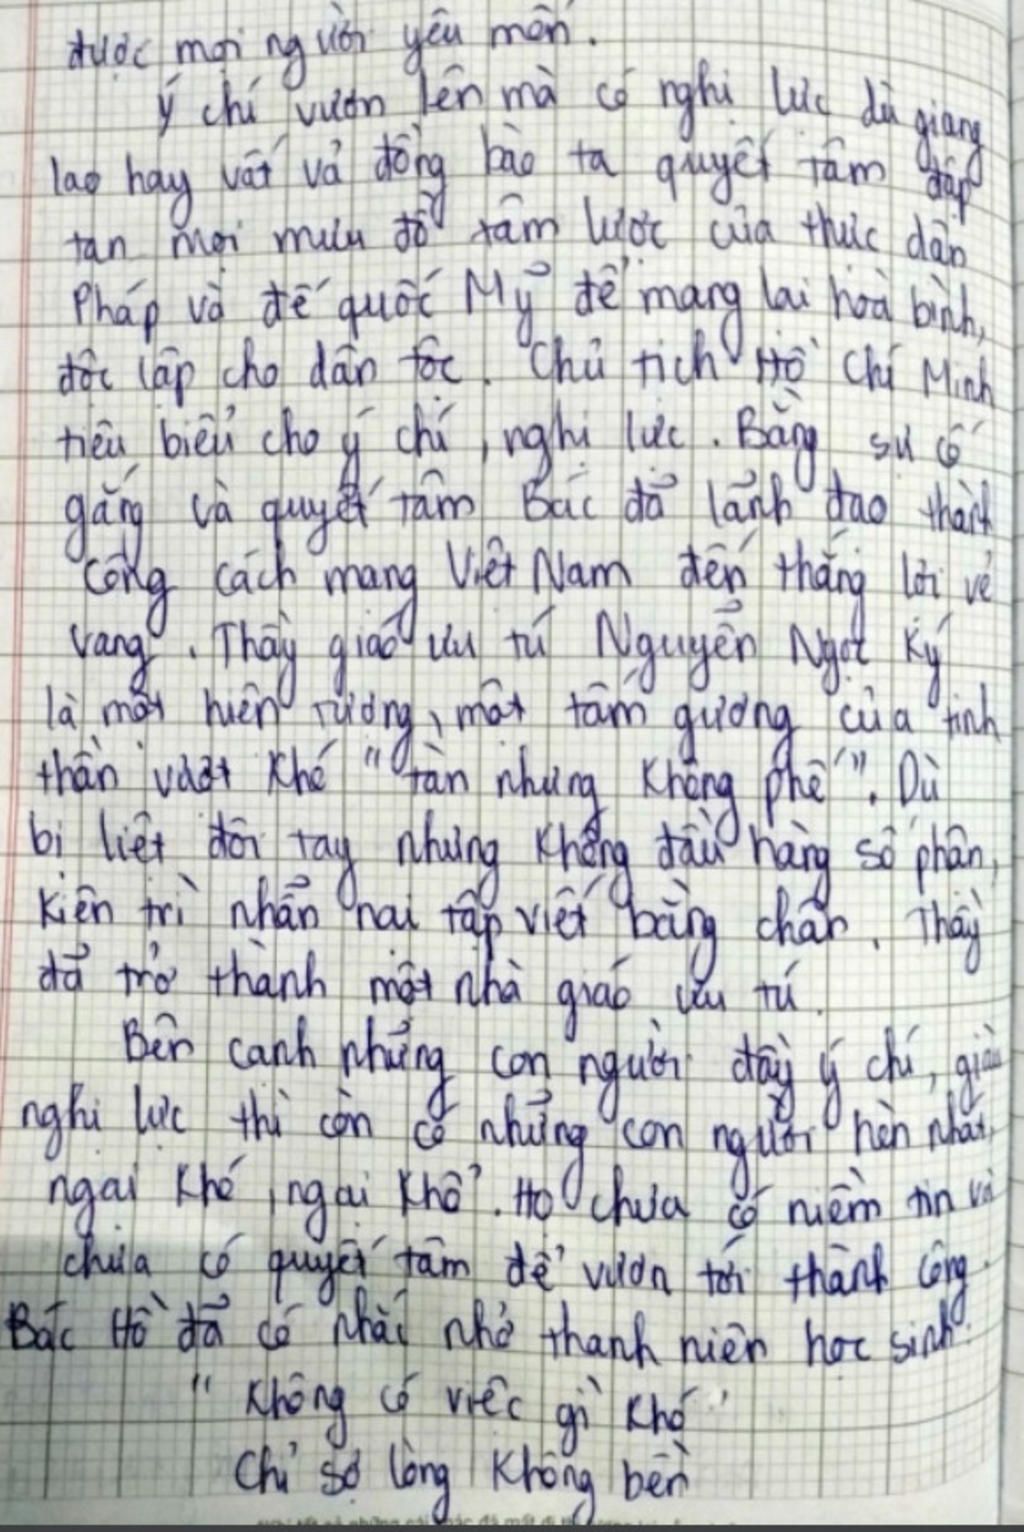 được mọi người yêu mến.
Ý chí vươn lên mà có nghị lực dù giang
lao hay vất vả đồng bào ta quyết tâm đập
tan mọi mưu đồ xâm lược của thực dân
Pháp và đế quốc Mỹ để mang lại hoà bình,
độc lập cho dân tộc. Chủ tịch Hồ Chí Minh
tiêu biểu cho ý chí, nghị lực. Bằng sự cố
gắng và quyết tâm Bác đã lãnh đạo thành
công cách mạng Việt Nam đến thắng lợi vẻ
vang. Thầy giáo ưu tú Nguyễn Ngọc Ký
là một hiện tượng, một tấm gương của tinh
thần vượt khó "tàn nhưng không phế". Dù
bị liệt đôi tay nhưng không đầu hàng số phận,
kiên trì nhẫn nại tập viết bằng chân. Thầy
đã trở thành một nhà giáo ưu tú.
Bên cạnh những con người đầy ý chí, giàu
nghị lực thì còn có những con người hèn nhát,
ngại khó, ngại khổ. Họ chưa có niềm tin và
chưa có quyết tâm để vươn tới thành công.
Bác Hồ đã có nhắc nhở thanh niên học sinh:
" Không có việc gì khó
Chỉ sợ lòng không bền